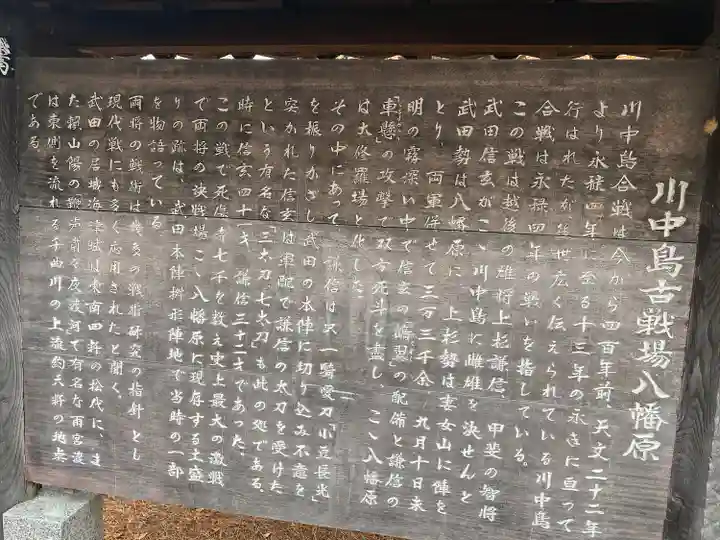 川中島古戦場八幡原
川中島合戦は今から四百年前、天文二十二年
より永禄四年に至る十三年の永きに亘って
行はれたが後世広く伝えられている川中島
合戦は永禄四年の戦いを指している。
この戦は越後の雄将上杉謙信、甲斐の智将
武田信玄がこゝ川中島に雌雄を決せんと
武田勢は八幡原に、上杉勢は妻女山に陣を
とり、両軍併せて三万三千余、九月十日未
明の霧深い中で信玄の「鶴翼」の配備と謙信の
「車懸」の攻撃で双方死斗を盡し、こゝ八幡原
は大修羅場と化した。
その中にあって、謙信は只一騎愛刀「小豆長光」
を振りかざし武田の本陣に切り込み不意を
突かれた信玄は軍配で謙信の太刀を受けた
という有名な「三太刀七太刀」も此の処である。
時に信玄四十一才、謙信三十二才であった。
この戦で死傷者七千を数え史上最大の激戦
で両将の決戦場こゝ八幡原に現存する土盛
りの跡は、武田本陣桝形陣地で当時の一部
を物語っている
両将の戦術は幾多の戦術研究の指針とし
現代戦にも多く応用されたと聞く。
武田の居城海津城は東南四粁の松代に、ま
た頼山陽の鞭声粛々夜渡河で有名な雨宮渡
は東側を流れる千曲川の上流約六粁の地点
である。